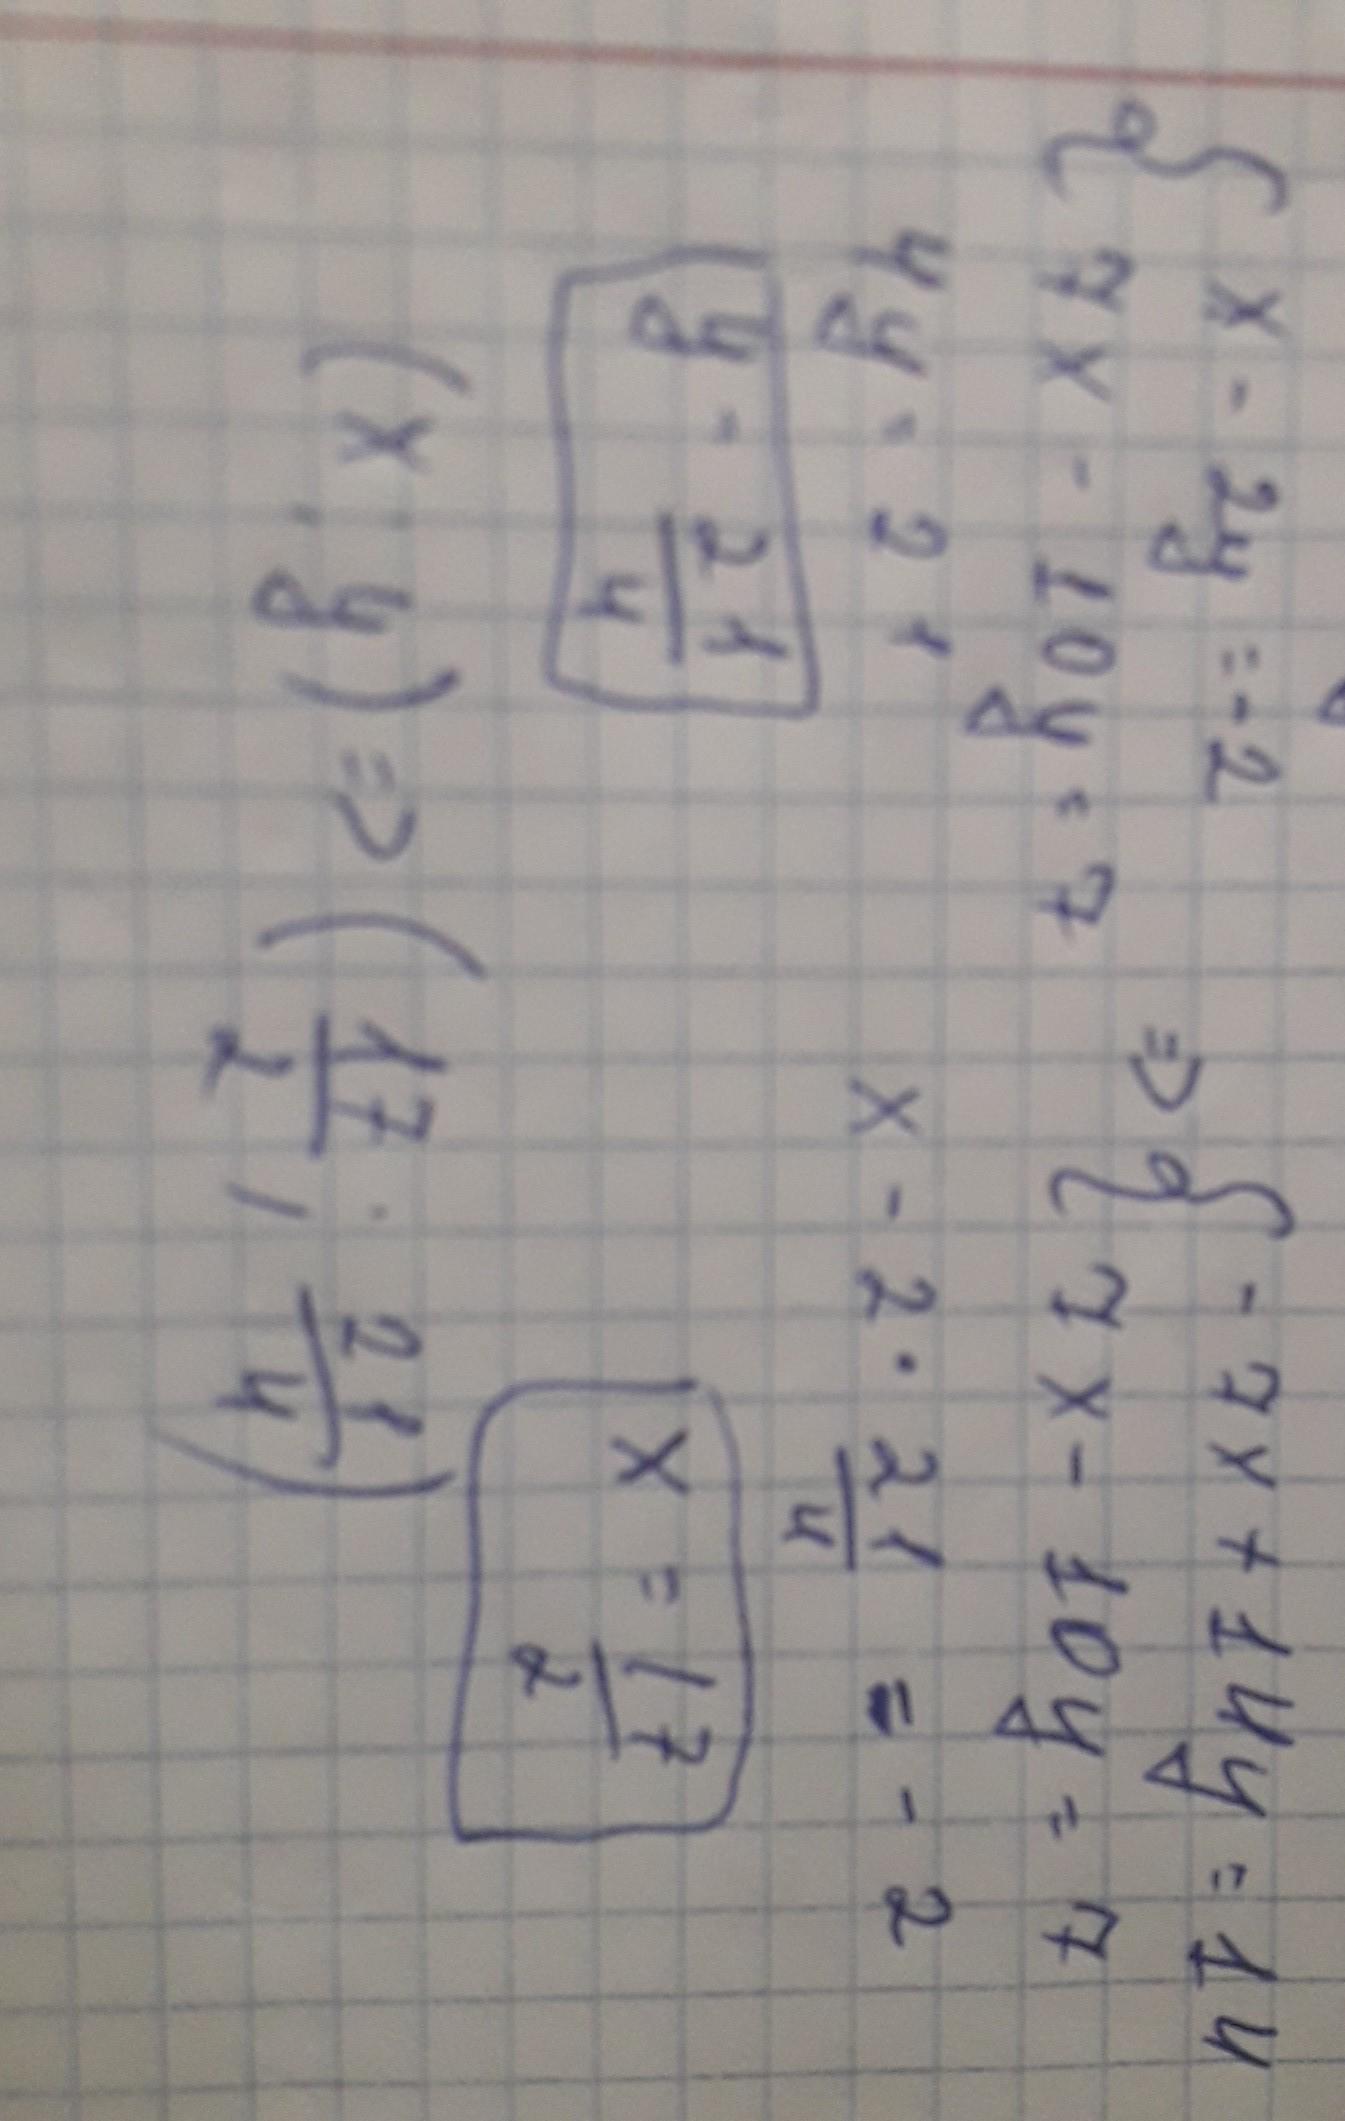 { x - 2y = -2
7x - 10y = 7 => { -7x + 14y = 14
7x - 10y = 7
4y = 21
x - 2 · 21/4 = -2
y = 21/4
x = 17/2
(x, y) => (17/2, 21/4)